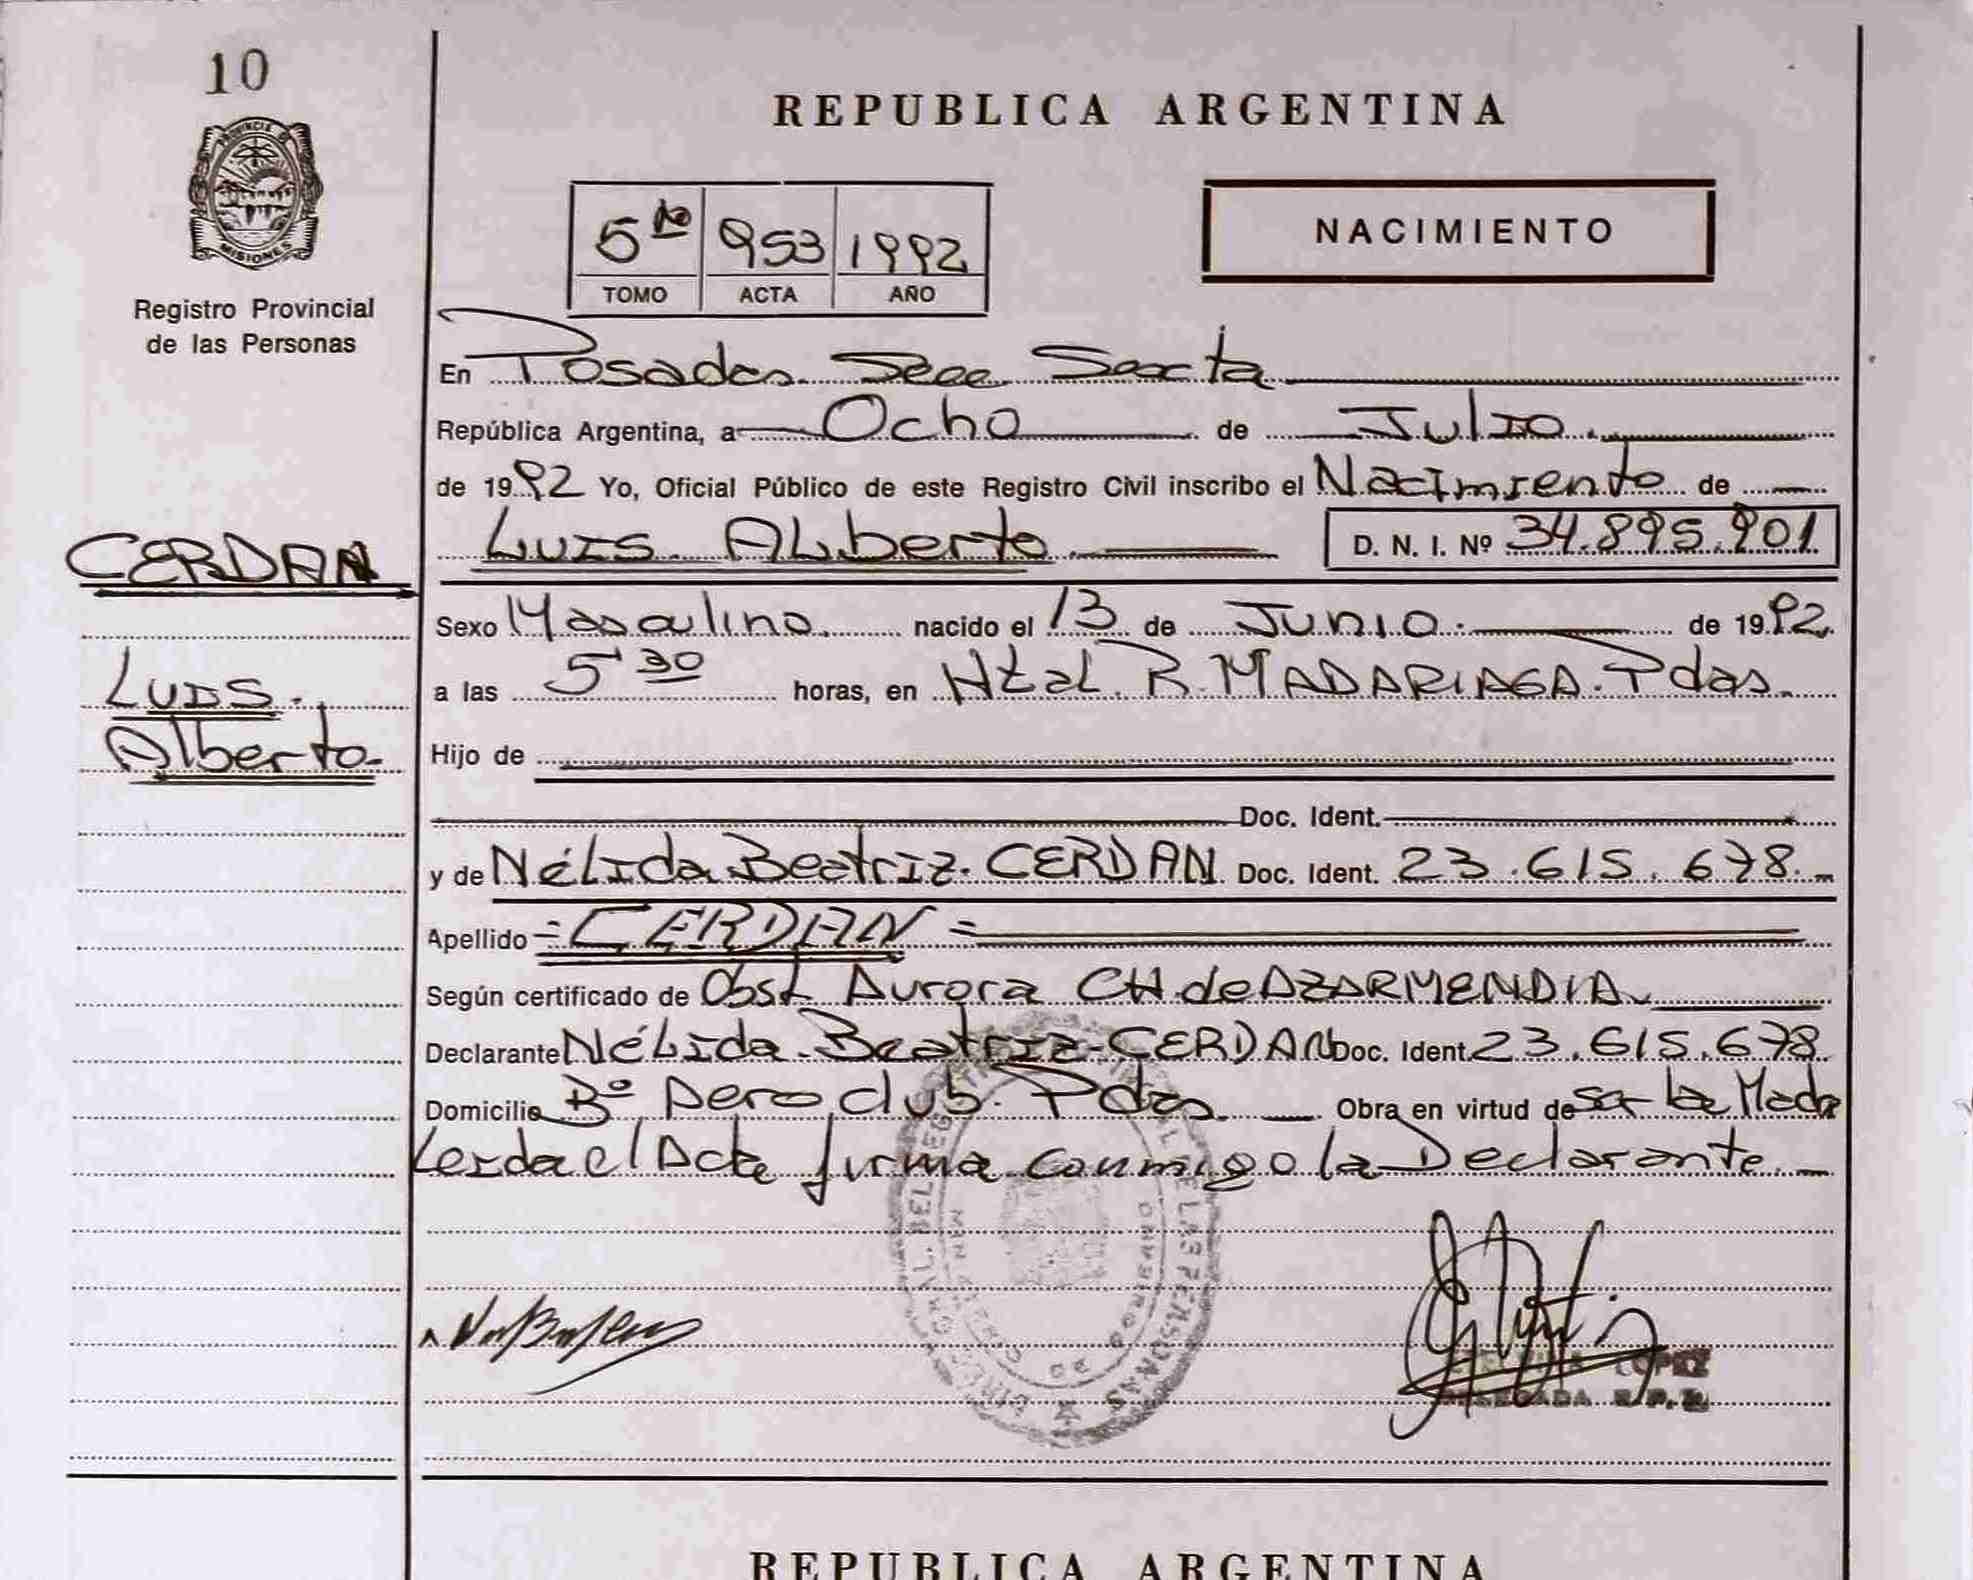 10
PROVINCIA DE
MISIONES
Registro Provincial
de las Personas
REPUBLICA ARGENTINA
5to 953 1992
TOMO ACTA AÑO
NACIMIENTO
En Posadas Secc Sexta
República Argentina, a Ocho de Julio
de 1992 Yo, Oficial Público de este Registro Civil inscribo el Nacimiento de
Luis Alberto D. N. I. Nº 34.895.901
CERDAN
Luis
Alberto
Sexo Masculino nacido el 13 de Junio de 1992
a las 5 30 horas, en Htal. R. MADARIAGA. Pdas.
Hijo de
Doc. Ident.
y de Nélida Beatriz. CERDAN Doc. Ident. 23.615.678.
Apellido = CERDAN =
Según certificado de Obst. Aurora CH. de AZARMENDIA
Declarante Nélida Beatriz CERDAN Doc. Ident. 23.615.678
Domicilio Bº Aero club. Pdas Obra en virtud de ser la Madre
Leida el Acta firma conmigo la Declarante.
DE LAS PERSONAS
LOPEZ
REPUBLICA ARGENTINA